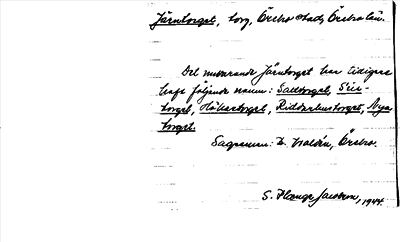 Järntorget, torg, Örebro stad, Örebro län.
Det nuvarande Järntorget har tidigare
haft följande namn: Salttorget,
torget, Hökartorget, Riddarhustorget, Nya
torget.
Sagesman: Örebro.
S. Jacobson, 1944.